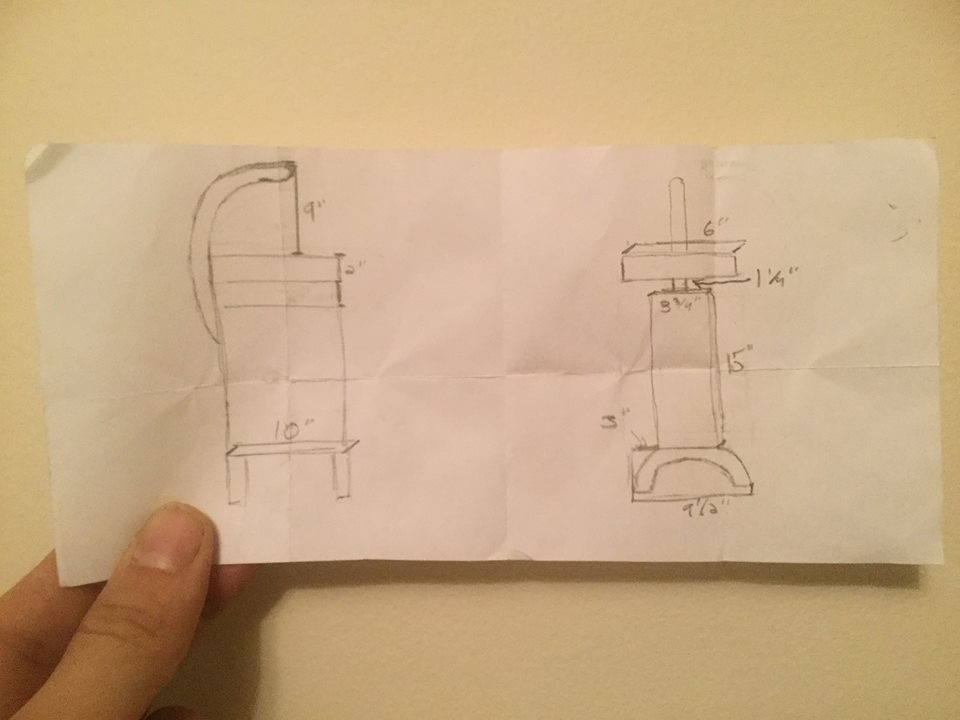 9"
2"
10"
6"
1 1/4"
3 3/4"
15"
3"
9 1/2"